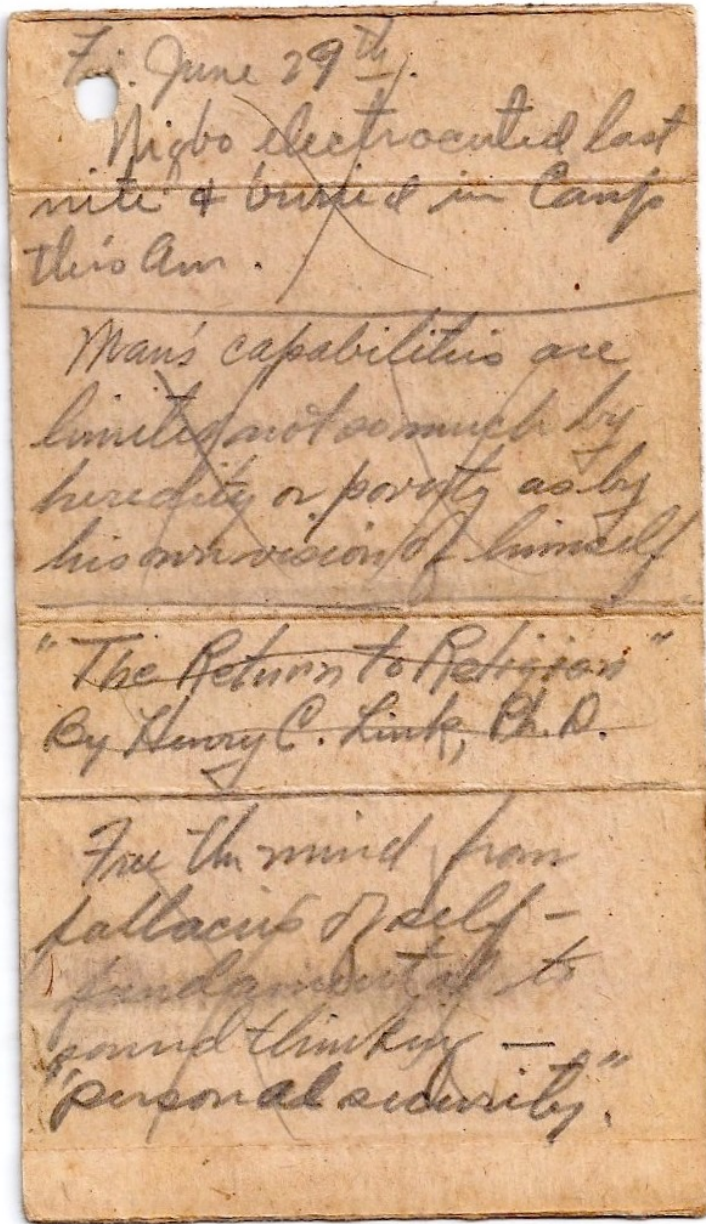 Fri. June 29th.
Nigbo electrocuted last
nite & buried in Camp
this Am.
Man's capabilities are
limited not so much by
heredity or poverty as by
his own vision of himself
"The Return to Religion"
By Henry C. Link, Ph.D.
Free the mind from
fallacies of self -
fundamental to
sound thinking —
"personal security."